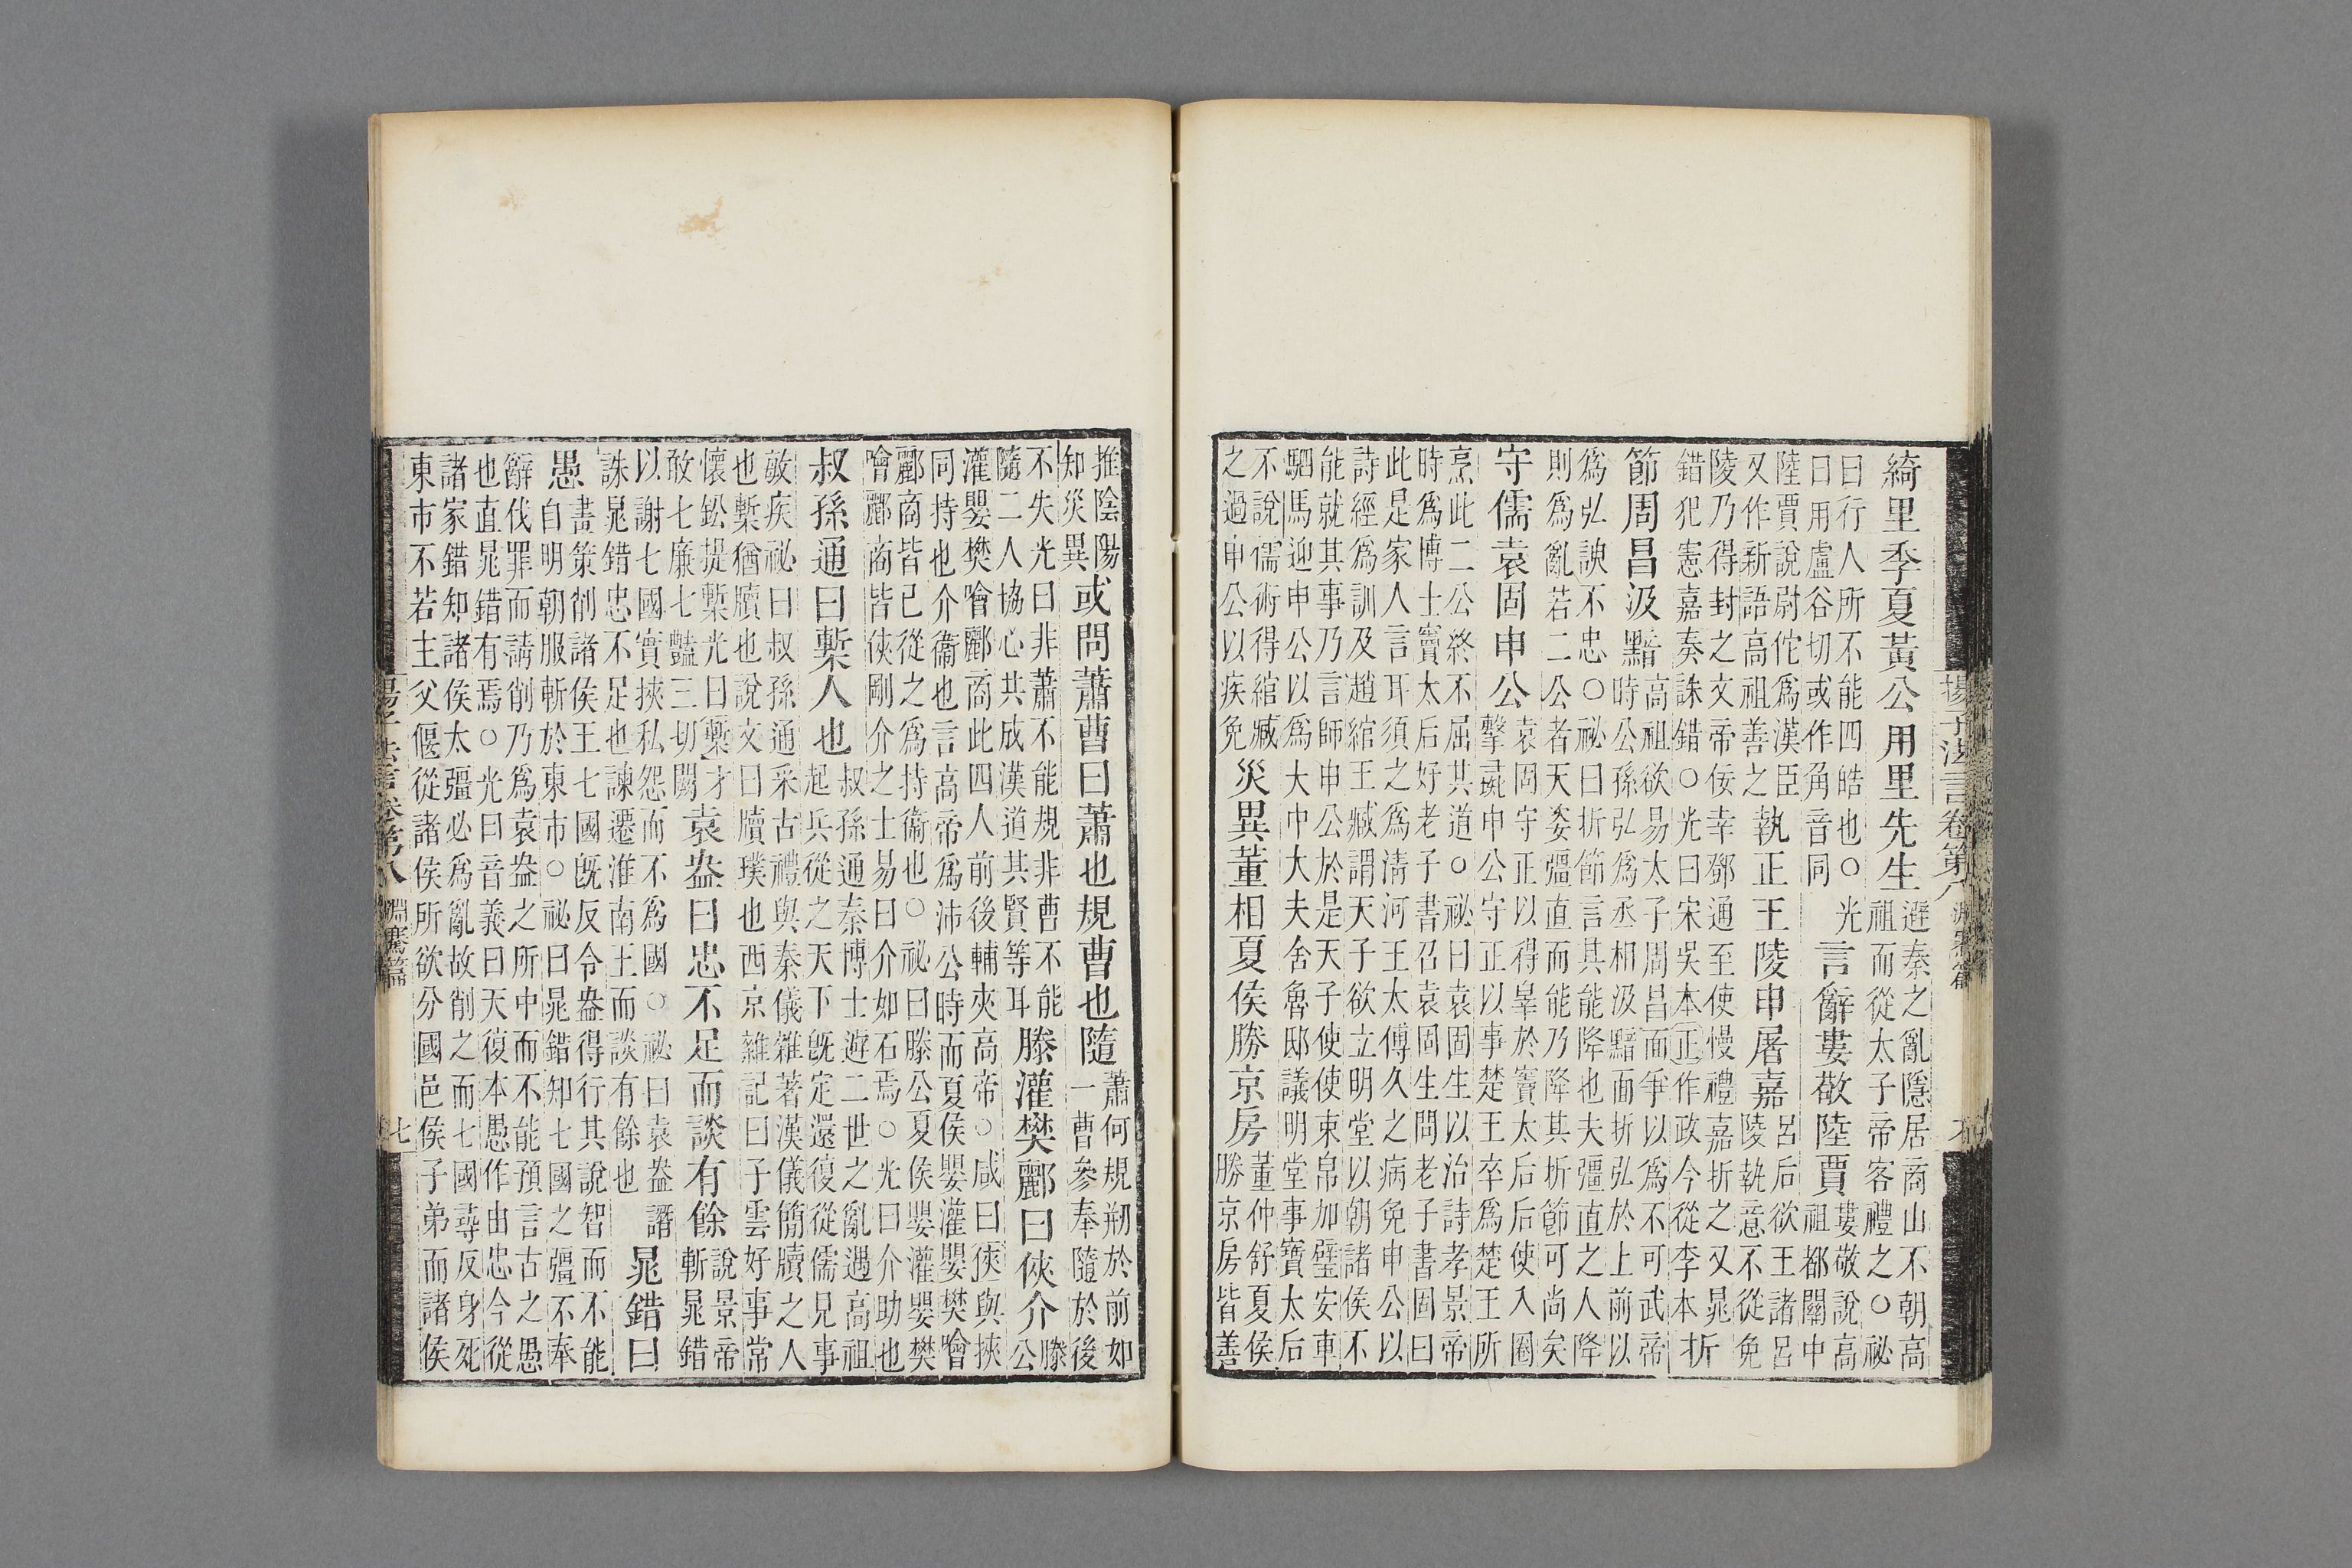 揚子法言卷第八 淵騫篇
綺里季夏黃公用里先生
避秦之亂隱居商山不朝高
祖而從太子帝客禮之○祕
曰行人所不能四皓也○光
曰用盧谷切或作角音同
言辭婁敬陸賈
婁敬說高
祖都關中
陸賈說尉佗爲漢臣
又作新語高祖善之
執正王陵申屠嘉
呂后欲王諸呂
陵執意不從免
陵乃得封之文帝佞幸鄧通至使慢禮嘉折之又晁
錯犯憲嘉奏誅錯○光曰宋吳本正作政今從李本
折
節周昌汲黯
高祖欲易太子周昌面爭以爲不可武帝
時公孫弘爲丞相汲黯面折弘於上前以
爲弘諛不忠○祕曰折節言其能降也夫彊直之人降
則爲亂若二公者天姿彊直而能乃降其折節可尚矣
守儒袁固申公
袁固守正以得辠於竇太后后使入圈
擊彘申公守正以事楚王卒爲楚王所
烹此二公終不屈其道○祕曰袁固生以治詩孝景帝
時爲博士竇太后好老子書召袁固生問老子書固曰
此是家人言耳須之爲淸河王太傅久之病免申公以
詩經爲訓及趙綰王臧謂天子欲立明堂以朝諸侯不
能就其事乃言師申公於是天子使使束帛加璧安車
駟馬迎申公以爲大中大夫舍魯邸議明堂事竇太后
不說儒術得綰臧
之過申公以疾免
災異董相夏侯勝京房
董仲舒夏侯
勝京房皆善
推陰陽
知災異
或問蕭曹曰蕭也規曹也隨
蕭何規刱於前如
一曹參奉隨於後
不失光曰非蕭不能規非曹不能
隨二人協心共成漢道其賢等耳
滕灌樊酈曰俠介
滕
公
灌嬰樊噲酈商此四人前後輔夾高帝○咸曰俠與挾
同持也介衞也言高帝爲沛公時而夏侯嬰灌嬰樊噲
酈商皆已從之爲持衞也○祕曰滕公夏侯嬰灌嬰樊
噲酈商皆俠剛介之士易曰介如石焉○光曰介助也
叔孫通曰槧人也
叔孫通秦博士遊二世之亂遇高祖
起兵從之天下旣定還復從儒見事
敏疾祕曰叔孫通采古禮與秦儀雜著漢儀簡牘之人
也槧猶牘也說文曰牘璞也西京雜記曰子雲好事常
懷鈆提槧光曰槧才
敢七廉七豔三切闕
袁盎曰忠不足而談有餘
說景帝
斬晁錯
以謝七國實挾私怨而不爲國○祕曰袁盎譖
誅晁錯忠不足也諫遷淮南王而談有餘也
晁錯曰
愚
畫策削諸侯王七國旣反令盎得行其說智而不能
自明朝服斬於東市○祕曰晁錯知七國之彊不奉
辭伐罪而請削乃爲袁盎之所中而不能預言古之愚
也直晁錯有焉○光曰音義曰天復本愚作由忠今從
諸家錯知諸侯太彊必爲亂故削之而七國尋反身死
東市不若主父偃從諸侯所欲分國邑侯子弟而諸侯
揚子法言卷第八 淵騫篇 七